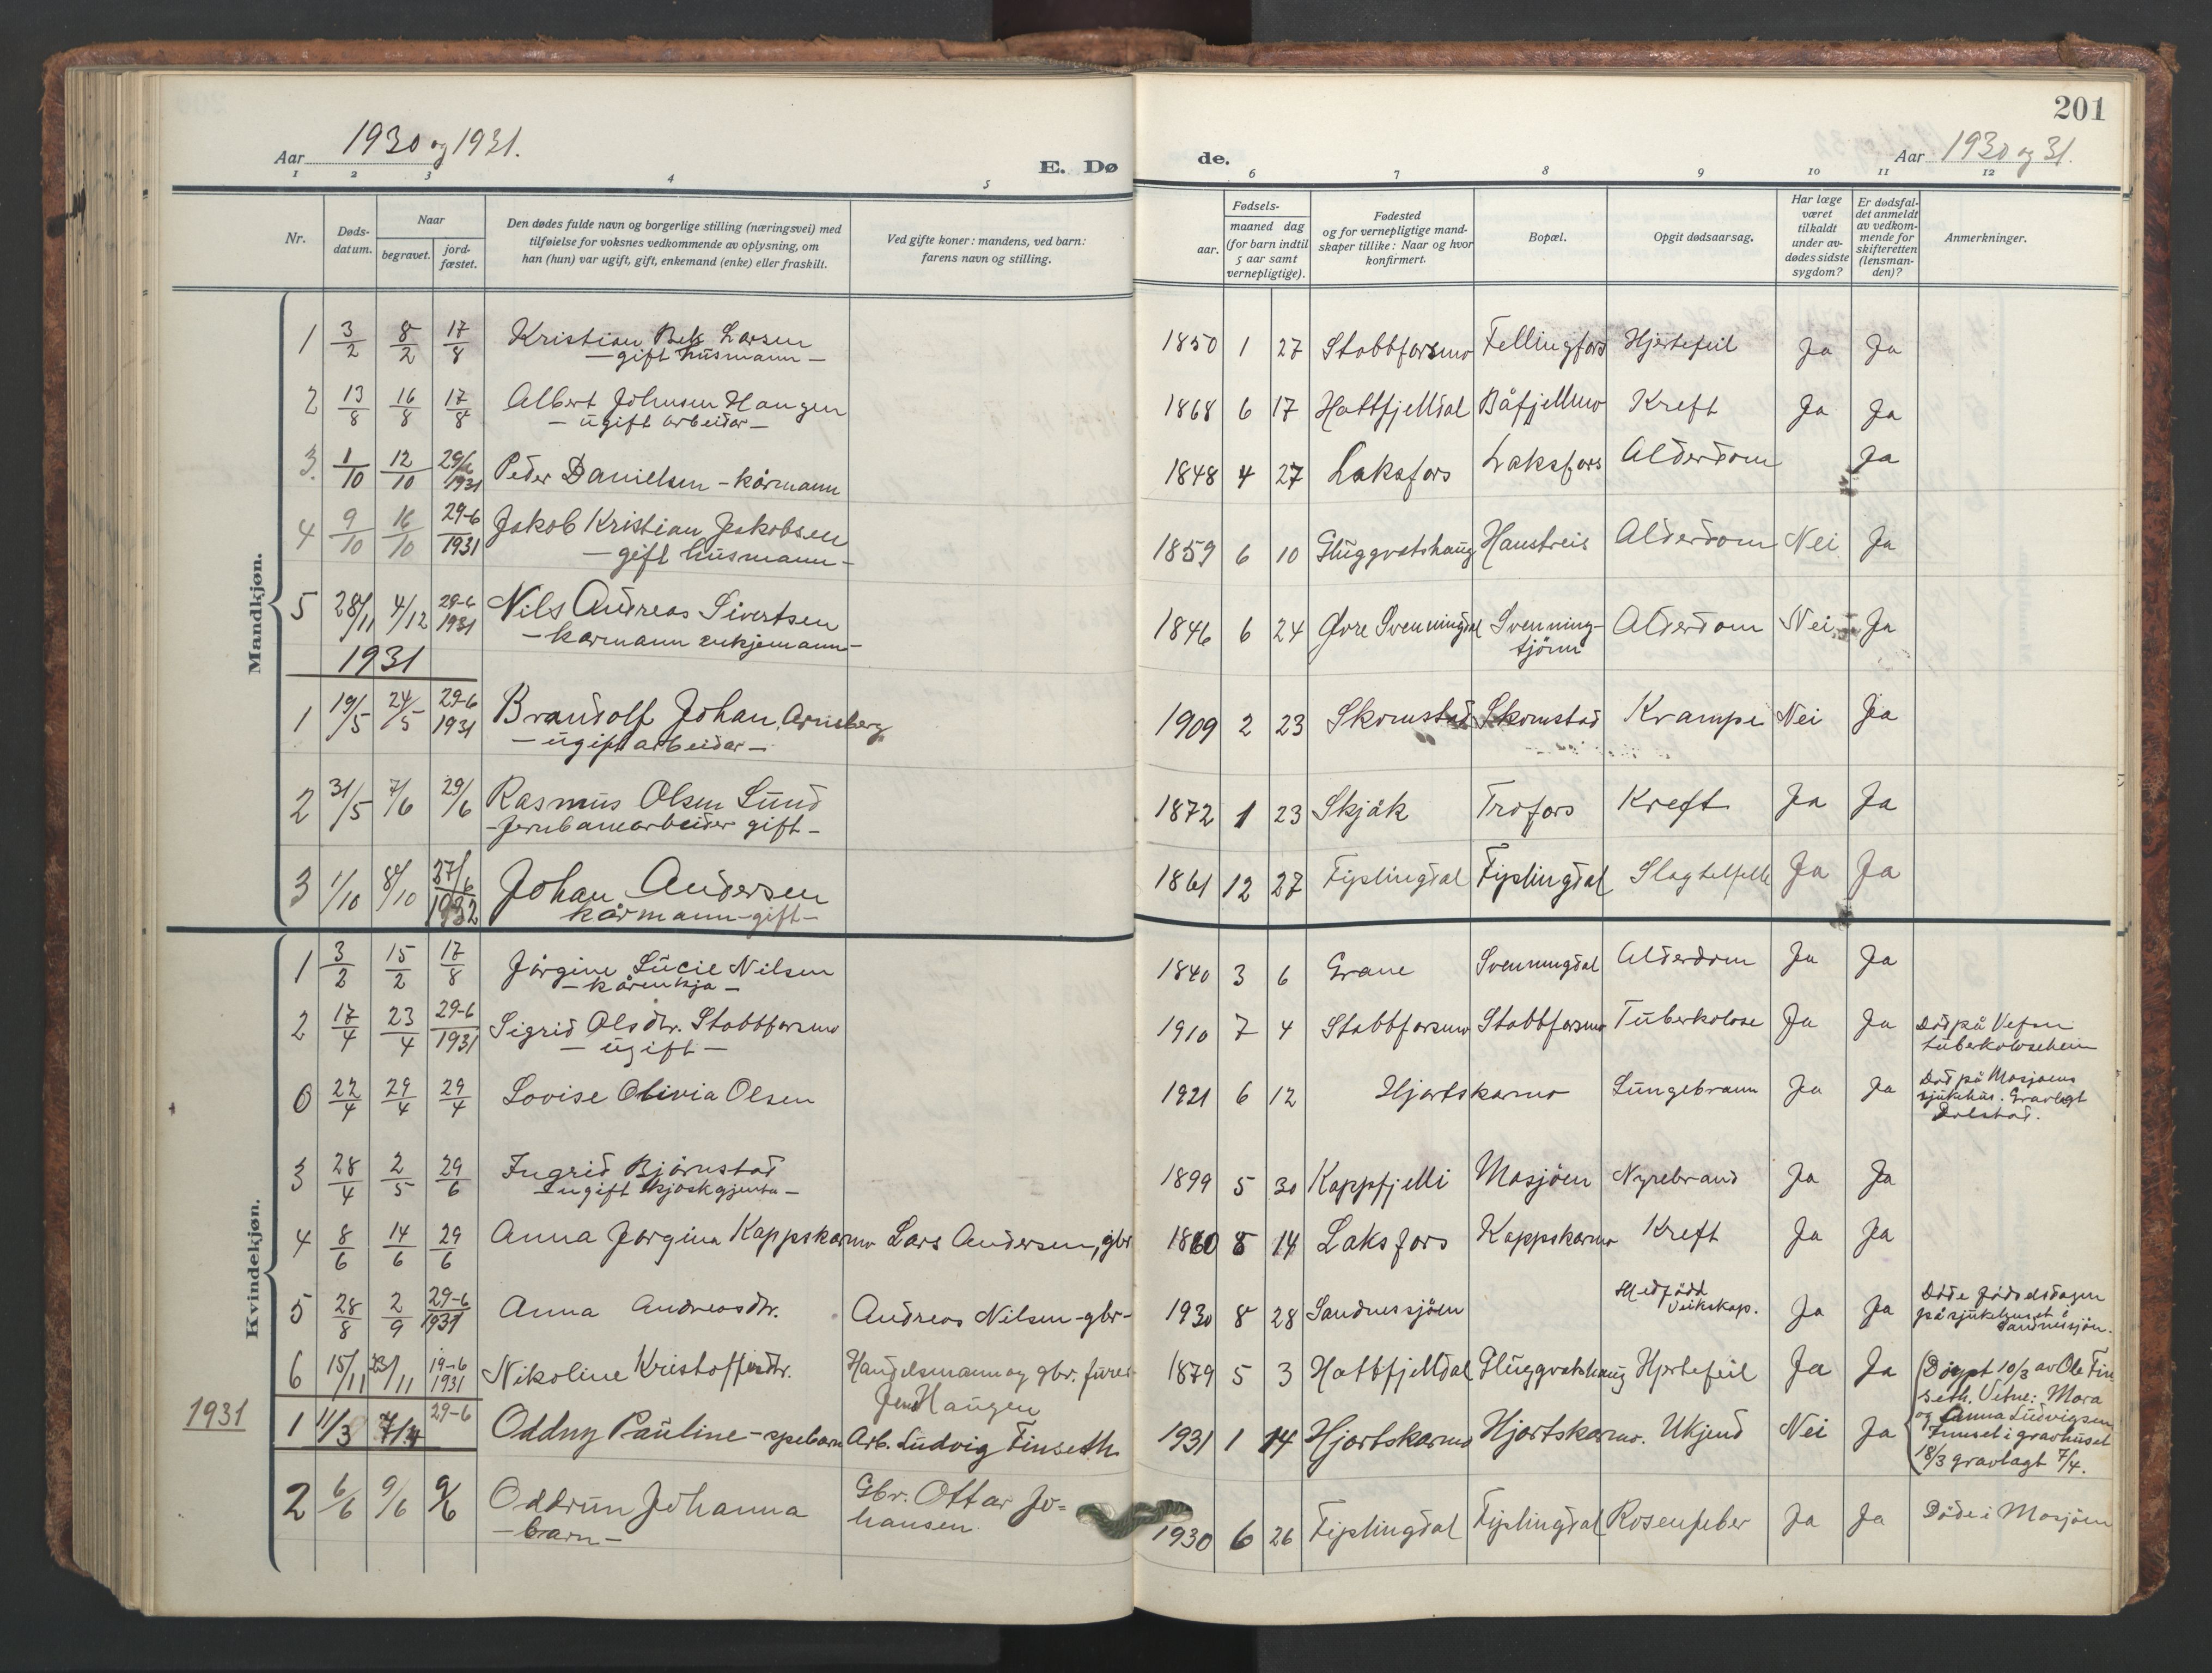 201
Aar 1930 og 1931.
E. Døde.
Aar 1930 og 31.
1 2 3 4 5 6 7 8 9 10 11 12
Nr.
Døds-datum.
Naar
begravet.
jord-fæstet.
Den dødes fulde navn og borgerlige stilling (næringsvei) med
tilføielse for voksnes vedkommende av oplysning, om
han (hun) var ugift, gift, enkemand (enke) eller fraskilt.
Ved gifte koner: mandens, ved barn:
farens navn og stilling.
Fødsels-
aar.
maaned dag
(for barn indtil
5 aar samt
vernepligtige).
Fødested
og for vernepligtige mand-
skaper tillike: Naar og hvor
konfirmert.
Bopæl.
Opgit dødsaarsag.
Har læge
været
tilkaldt
under av-
dødes sidste
sygdom?
Er dødsfal-
det anmeldt
av vedkom-
mende for
skifteretten
(lensman-
den)?
Anmerkninger.
Mandkjøn.
1 3/2 8/2 17/8 Kristian Larsen 1850 1 27 Stabbforsmo Fellingfors Hjertefeil Ja Ja
— gift husmann —
2 13/8 16/8 17/8 Albert Johnsen Haugen 1868 6 17 Hattfjelldal Båfjellmo Kreft Ja Ja
— ugift arbeider —
3 1/10 12/10 29/6 1931 Peder Danielsen - kårmann 1848 4 27 Laksfors Laksfors Alderdom Ja
4 9/10 16/10 29-6 1931 Jakob Kristian Jakobsen 1859 6 10 Gluggvatshaug Haustreis Alderdom Nei Ja
— gift husmann —
5 28/11 4/12 29-6 1931 Nils Andreas Sivertsen 1846 6 24 Øvre Svenningdal Svenning-tjønn Alderdom Nei Ja
— kårmann enkjemann —
1931
1 19/5 24/5 29-6 1931 Brandolf Johan Arneberg 1909 2 23 Skomstad Skomstad Krampe Nei Ja
— ugift arbeider —
2 31/5 7/6 29/6 Rasmus Olsen Lund 1872 1 23 Skjåk Trofors Kreft Ja Ja
- Jernbanearbeider gift -
3 1/10 8/10 27/6 1932 Johan Andersen 1861 12 27 Fiplingdal Fiplingdal Ja Ja
kårmann - gift -
Kvindekjøn.
1 3/2 15/2 17/8 Jørgine Lucie Nilsen 1840 3 6 Grane Svenningdal Alderdom Ja Ja
— kårenkja —
2 17/4 23/4 29-6 1931 Sigrid Olsdtr. Stabbforsmo 1910 7 4 Stabbforsmo Stabbforsmo Tuberkolose Ja Ja Död på Vefsn
— ugift — tuberkolosehein
0 22/4 29/4 29/4 Lovise Olivia Olsen 1921 6 12 Hjortskarmo Lungebrann Ja Ja Død på Mosjøens
sjukehus. Gravlagt
Dolstad.
3 28/4 2/5 29/6 Ingrid Bjørnstad 1899 5 30 Kappfjelli Mosjöen Nyrebrand Ja Ja
— ugift kjøskgjenta —
4 8/6 14/6 29/6 Anna Jørgina Kappskarmo Lars Andersen, gbr 1860 8 14 Laksfors Kappskarmo Kreft Ja Ja
5 28/8 2/9 29-6 1931 Anna Andreasdtr. Andreas Nilsen - gbr - 1930 8 28 Sandnessjöen Medfödd veikskap. Ja Ja Döde fødselsdagen
på sjukehuset i
Sandnessjön.
6 15/11 23/11 19-6 1931 Nikoline Kristoffersdtr. Handelsmann og gbr. 1879 5 3 Hattfjelldal Gluggvatshaug Hjertefeil Ja Ja
Jens Haugen
1931
1 11/3 7/4 29-6 Oddny Pauline - spebarn Arb. Ludvig Finseth 1931 1 14 Hjortskarmo Hjortskarmo. Ukjend Nei Ja (Døypt 10/3 av Ole Fin
seth. Vitne: Mara
og Anna Ludvigsen
Innset i gravhuset
18/3 gravlagt 7/4.
2 6/6 9/6 9/6 Oddrun Johanna Gbr. Ottar Jo= 1930 6 26 Fiplingdal Fiplingdal Rosenfeber Ja Ja Döde i Mosjöen
— barn — hansen